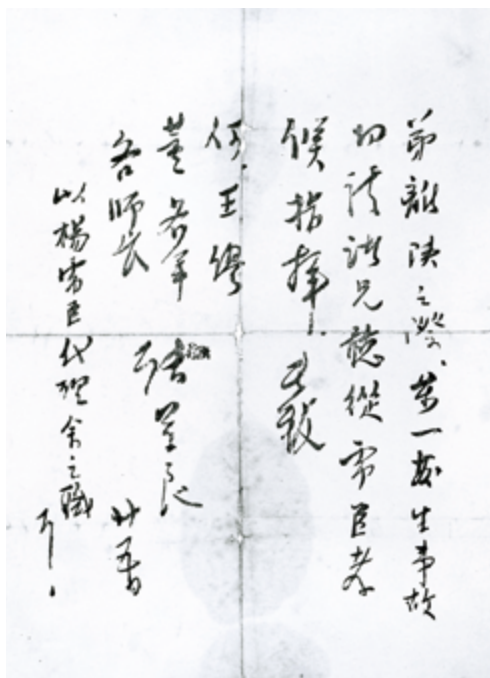 弟離陝之際、萬一發生事故
切請諸兄聽從虎臣孝
侯指揮、此致
何、王、繆、
董各軍
各師長
張學良 廿五日
以楊虎臣代理余之職
即、